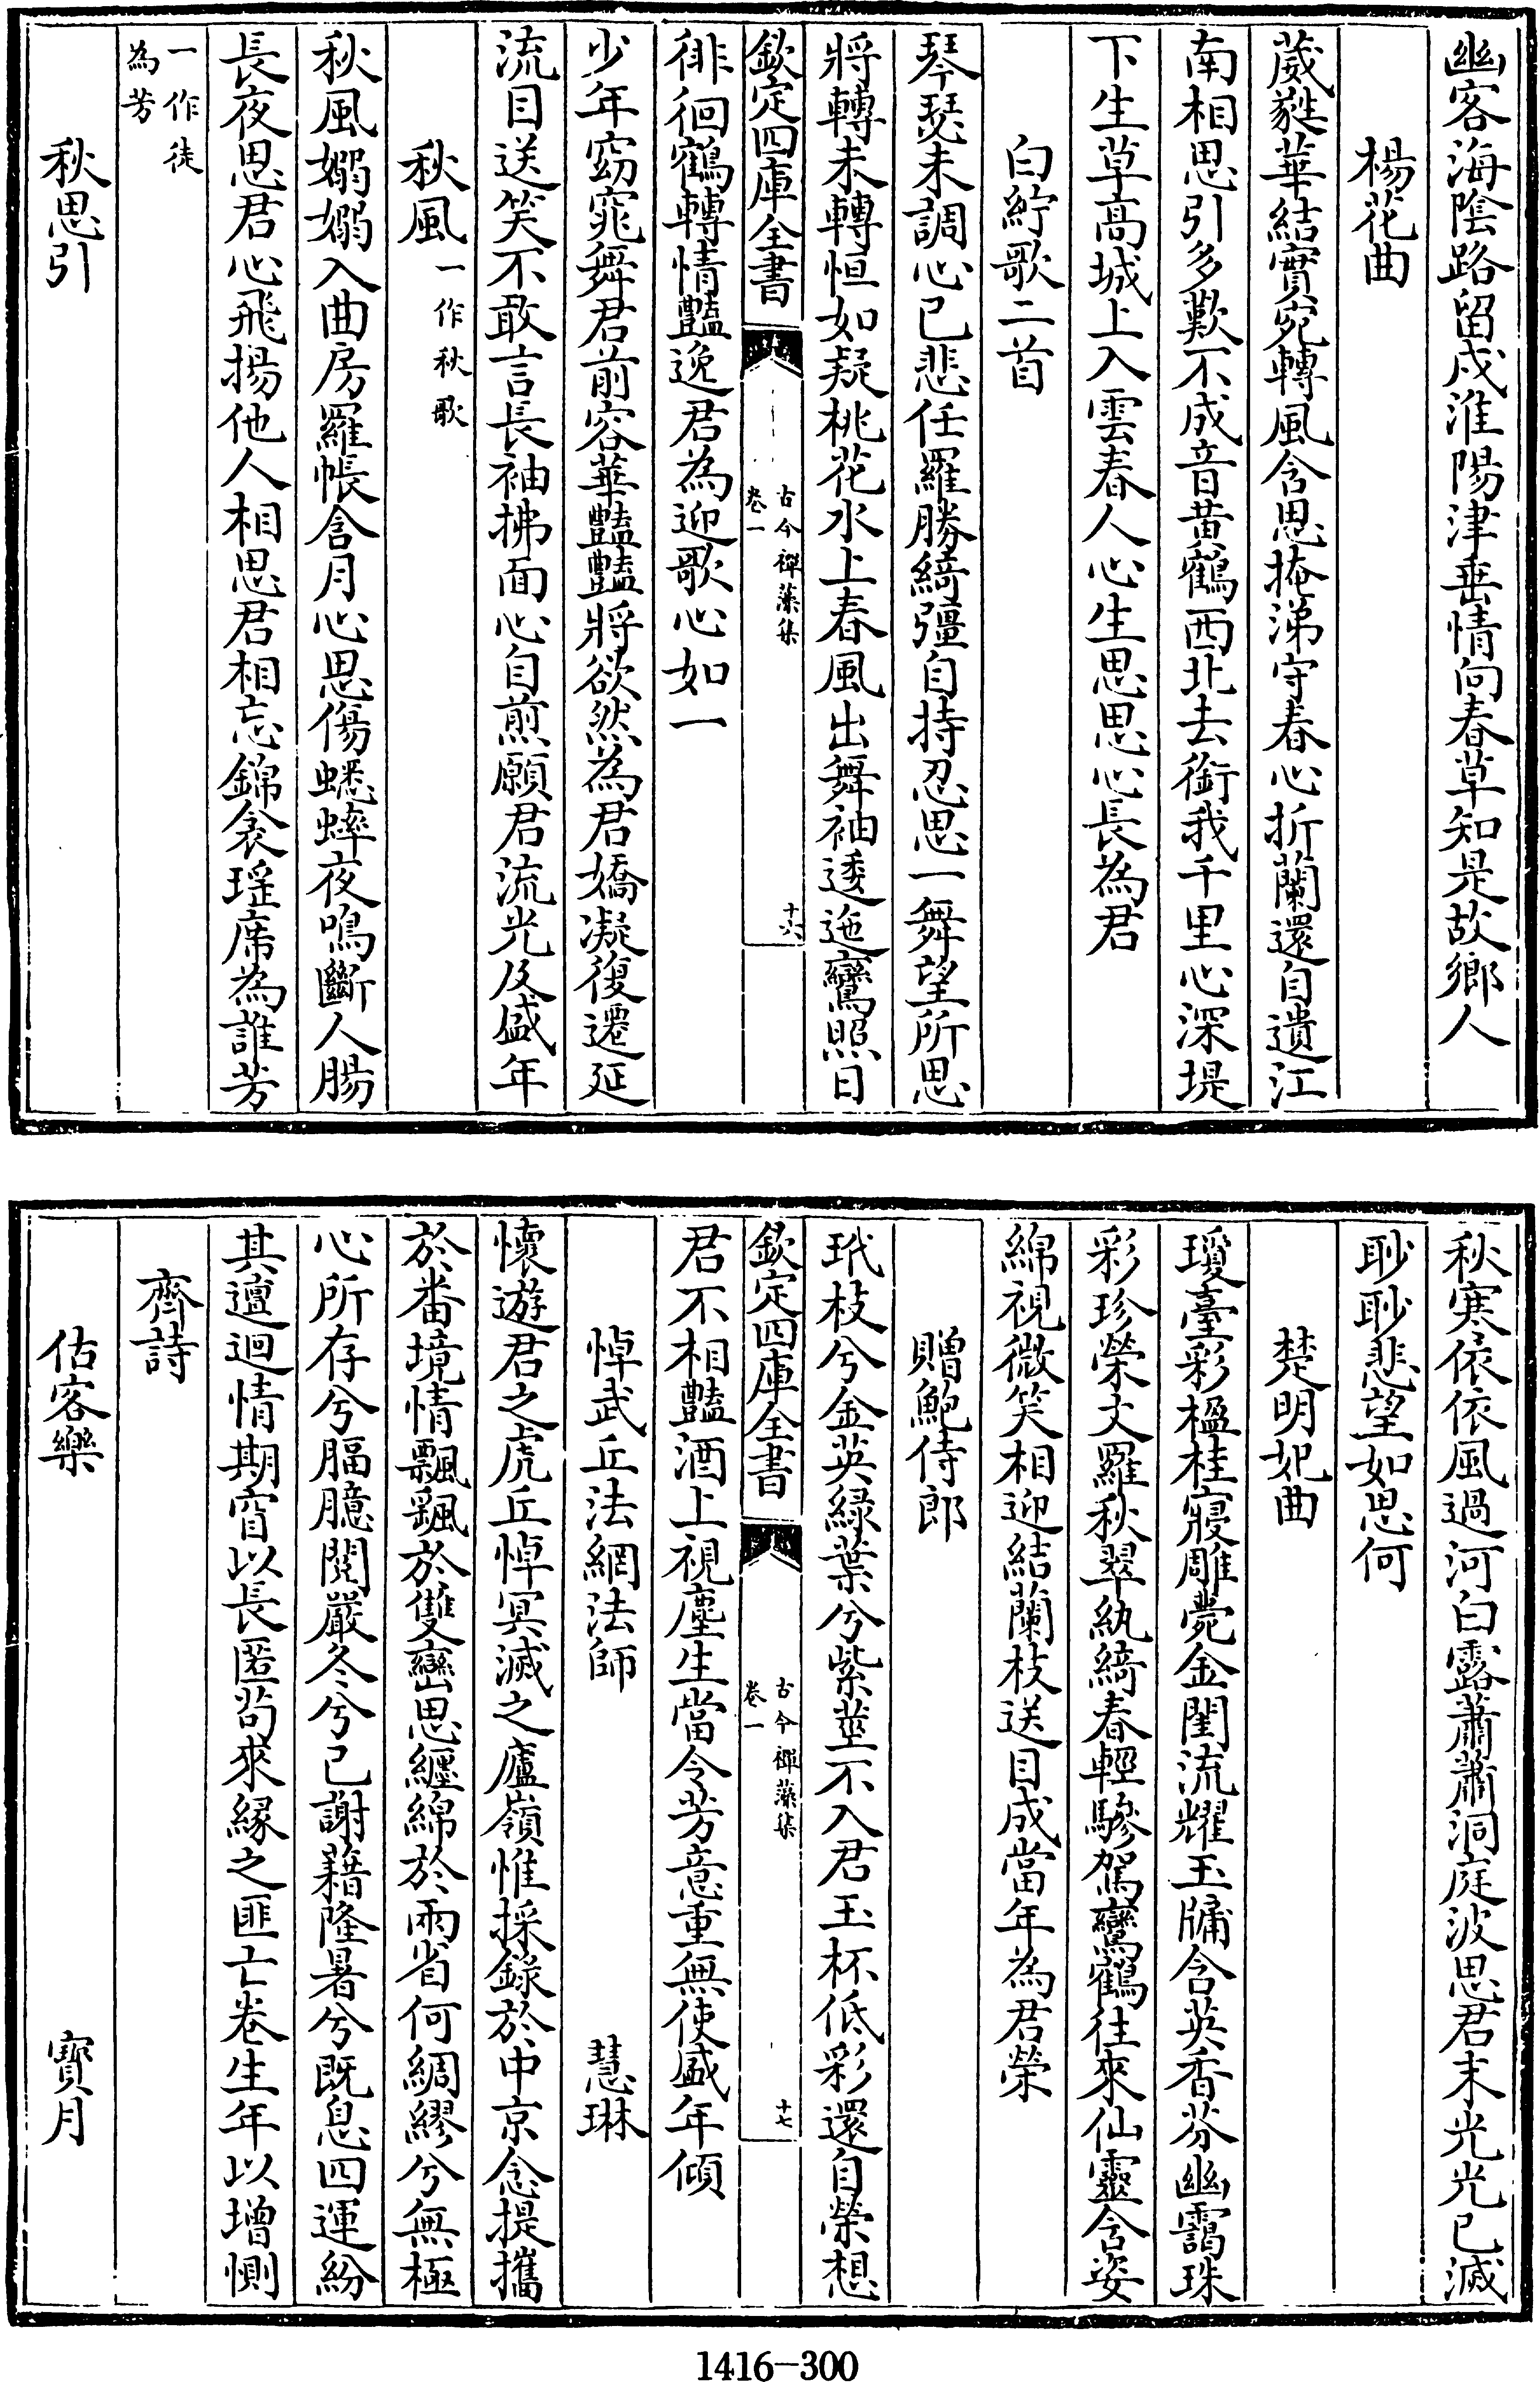 幽客海陰路留戍淮陽津垂情向春草知是故鄉人
楊花曲
葳蕤華結實宛轉風含思掩涕守春心折蘭還自遺江
南相思引多歎不成音黄鶴西北去銜我千里心深堤
下生草高城上入雲春人心生思思心長為君
白紵歌二首
琴瑟未調心已悲任羅勝綺彊自持忍思一舞望所思
將轉未轉恒如疑桃花水上春風出舞袖逶迤鸞照日
欽定四庫全書
古今禪藻集
卷一
十六
徘徊鶴轉情豔逸君為迎歌心如一
少年窈窕舞君前容華豔豔將欲然為君嬌凝復遷延
流目送笑不敢言長袖拂面心自煎願君流光及盛年
秋風一作秋歌
秋風嫋嫋入曲房羅帳含月心思傷蟋蟀夜鳴斷人腸
長夜思君心飛揚他人相思君相忘錦衾瑤席為誰芳
一作徒
為芳
秋思引
秋寒依依風過河白露蕭蕭洞庭波思君末光光已滅
眇眇悲望如思何
楚明妃曲
瓊臺彩楹桂寢雕甍金閨流耀玉牖含英香芬幽靄珠
彩珍榮文羅秋翠紈綺春輕驂駕鸞鶴往來仙靈含姿
綿視微笑相迎結蘭枝送目成當年為君榮
贈鮑侍郎
玳枝兮金英緑葉兮紫莖不入君玉杯低彩還自榮想
欽定四庫全書
古今禪藻集
卷一
十七
君不相豔酒上視塵生當令芳意重無使盛年傾
悼武丘法綱法師 慧琳
懷遊君之虎丘悼冥滅之廬嶺惟採錄於中京念提攜
於番境情飄颻於雙巒思纏綿於兩省何綢繆兮無極
心所存兮膈臆閱嚴冬兮已謝藉隆暑兮既息四運紛
其邅迴情期窅以長匿茍求緣之匪亡卷生年以增惻
齊詩
估客樂 寳月
1416-300